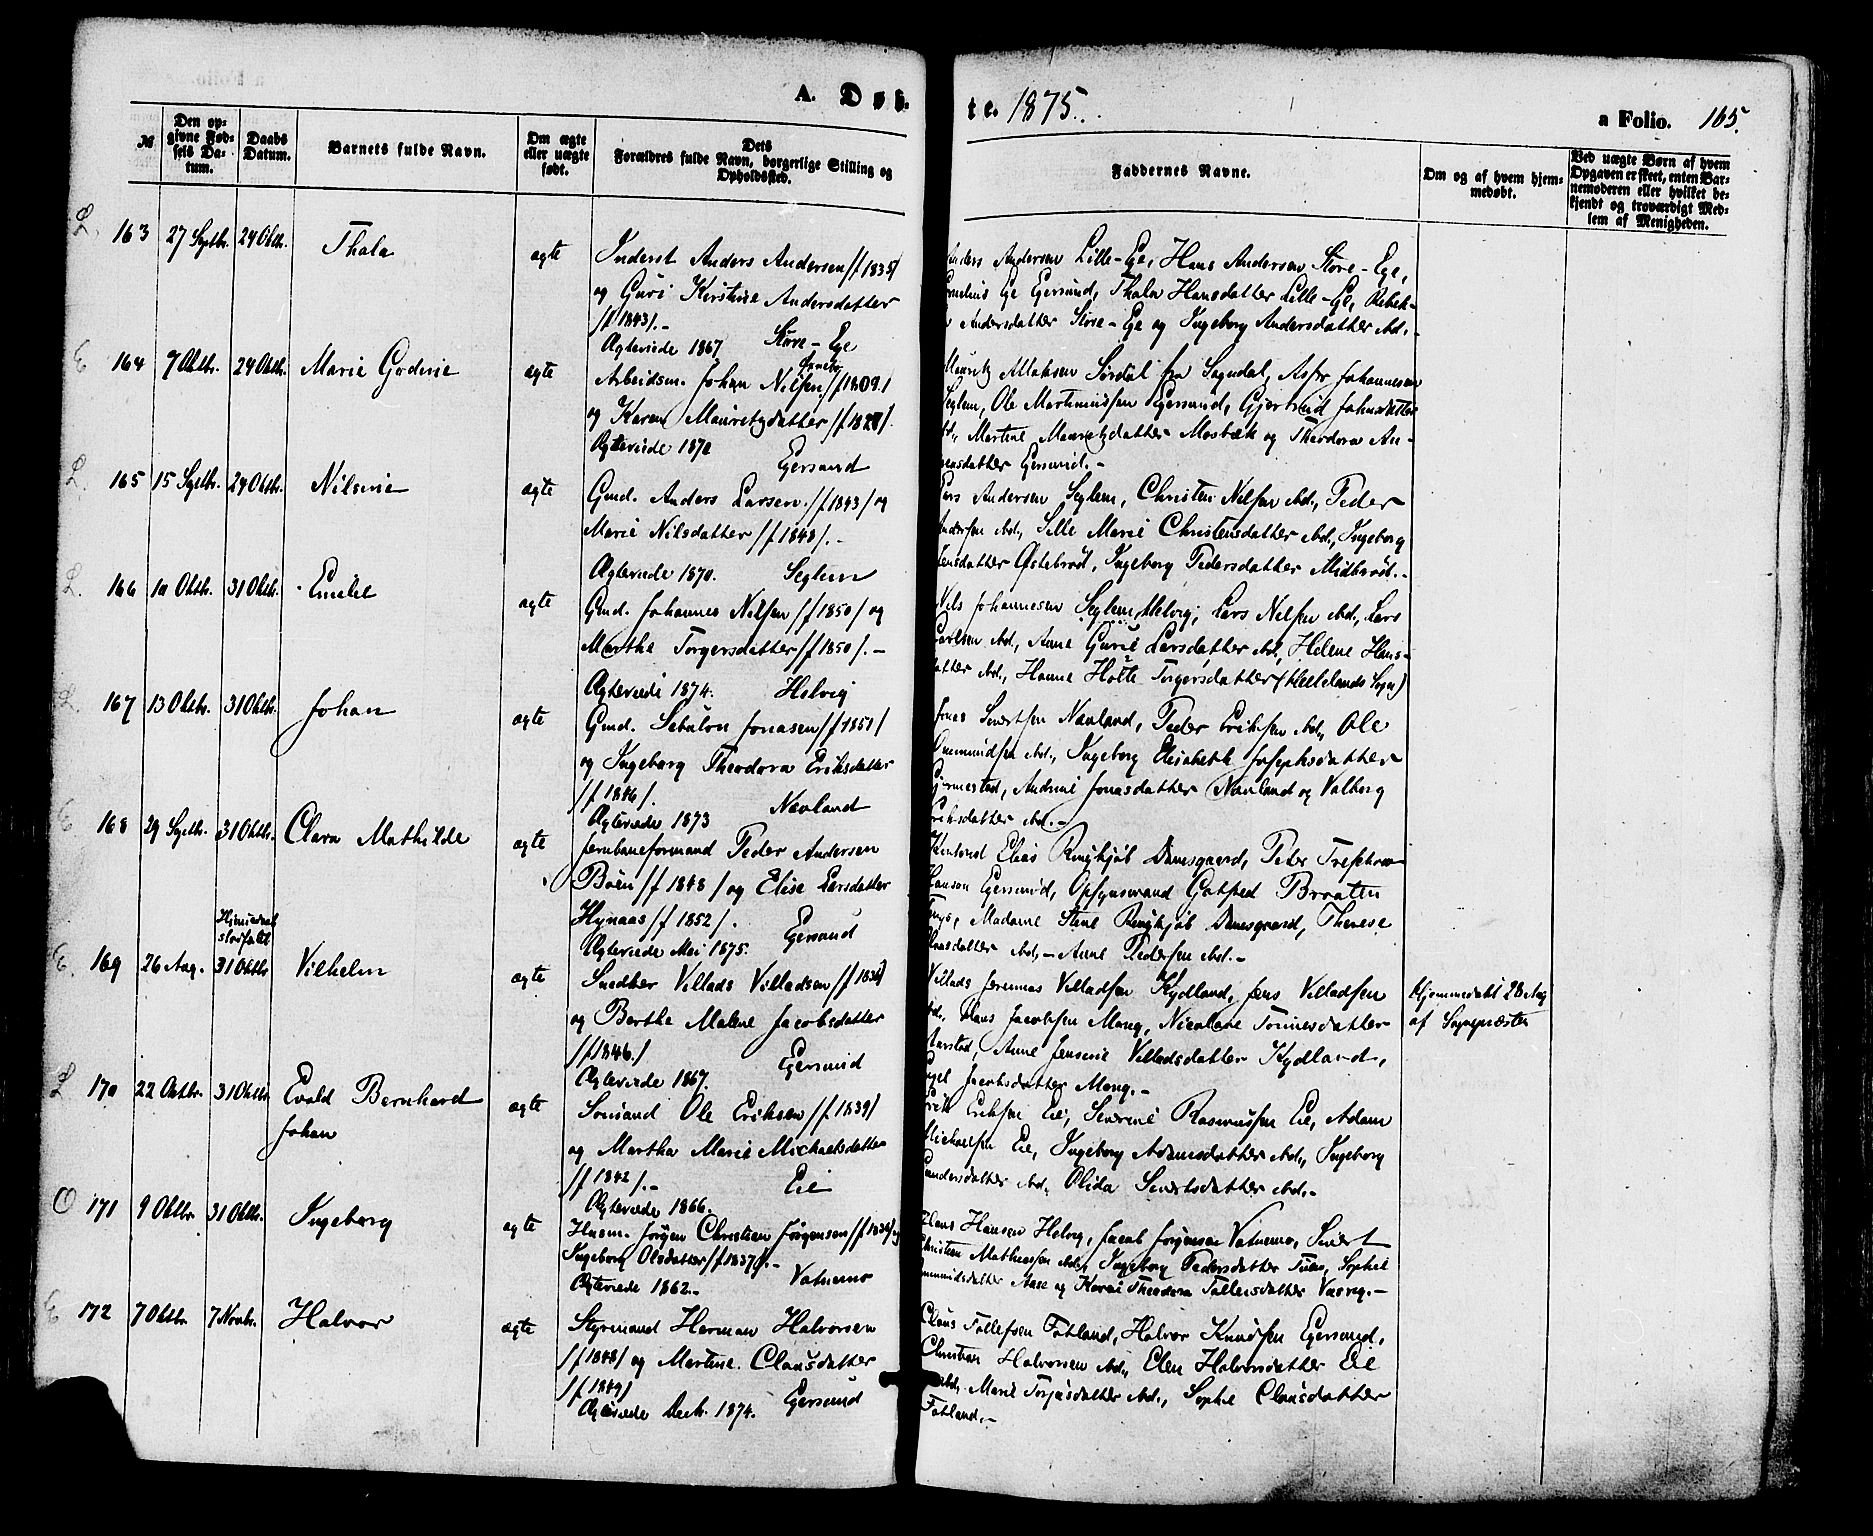 A. Døb-
te. 1875.
a Folio. 165.
№
Den op-
givne Fød-
sels Da-
tum.
Daabs
Datum.
Barnets fulde Navn.
Om ægte
eller uægte
født.
Dets
Forældres fulde Navn, borgerlige Stilling og
Opholdssted.
Faddernes Navne.
Om og af hvem hjem-
medøbt.
Ved uægte Børn af hvem
Opgaven er skeet, enten Bar-
nemoderen eller hvilket be-
kjendt og troværdigt Med-
lem af Menigheden.
L. 163 27 Septbr. 24 Oktb. Thala ægte
Inderst Anders Andersen /f 1835/
og Guri Kirstine Andersdatter
/f 1843/.-
Ægteviede 1867 Store-Ege
Anders Andersen Lille-Ege, Hans Andersen Store-Ege,
Cornelius Ege Egersund, Thala Hansdatter Lille-Ege, Rebek-
Andersdatter Store-Ege og Ingeborg Andersdatter ibd.-
E 164 7 Oktbr. 24 Oktb. Marie Godine ægte
Arbeidsm. Johan Nilsen /f 1809/
og Karen Mauritzdatter /f 1827/.
Ægteviede 1872 Egersund
Mauritz Sørdal fra Sogndal, Johannesen
Seglem, Ole Martiniusen Egersund, Gjertrud Johnsdatter
ibd., Martine Mauritzdatter Mosbæk og Theodora An-
densdatter Egersund.-
L. 165 15 Septbr. 24 Oktb. Nilsine ægte
Gmd. Anders Larsen /f 1843/ og
Marie Nilsdatter /f 1848/.-
Ægteviede 1870. Seglem
Lars Andersen Seglem, Christen Nilsen ibd., Peder
Andersen ibd., Sille Marie Christensdatter ibd., Ingeborg
Jensdatter Østebrød, Ingeborg Pedersdatter Midbrød.-
L. 166 10 Oktb. 31 Oktb. Emilie ægte
Gmd. Johannes Nilsen /f 1850/ og
Marthe Torgersdatter /f 1850/.-
Ægteviede 1874. Helvig
Nils Johannesen Seglem Helvig, Lars Nilsen ibd., Lars
Carlsen ibd., Anne Gurie Larsdatter ibd., Helene Hans-
datter ibd., Hanne Holte Torgersdatter (Hellelands Sogn)
L. 167 13 Oktb. 31 Oktb. Johan ægte
Gmd. Sebulon Jonasen /f 1851/
og Ingeborg Theodora Eriksdatter
/f 1846/.
Ægteviede 1873 Nevland
Jonas Sivertsen Nevland, Peder Eriksen ibd., Ole
Ommundsen ibd., Ingeborg Elisabeth Josephsdatter
Gjermestad, Andrine Jonasdatter Nevland og Valborg
Eriksdatter ibd.-
E 168 29 Septbr. 31 Oktbr. Clara Mathilde ægte
Jernbaneformand Peder Andersen
Böen /f 1848/ og Elise Larsdatter
Hynaas /f 1852/.
Ægteviede Mai 1875. Egersund
Elias Ringkjøb Damsgaard, Peter
Hansen Egersund, Opsynsmand Gotfred Braaten
Madame Stene Ringkjøb Damsgaard, Therese
datter ibd.,- Anne Pedersen ibd.-
E. 169 26 Aug. Hjemmedaab
stadfæstet
31 Oktb Vilhelm ægte
Snedker Villads Villadsen /f 1838/
og Berthe Malene Jacobsdatter
/f 1846./
Ægteviede 1867. Egersund
Villads Jeremias Villadsen Kydland, Jens Villadsen
ibd., Hans Jacobsen Mong, Nicoline Tønnesdatter
Aarstad, Anne Jensine Villadsdatter Kydland,
Jacobsdatter Mong.-
Hjemmedøbt 28 Aug
af Sognepræsten
L 170 22 Oktbr. 31 Oktb Evald Bernhard
Johan
ægte
Sømand Ole Eriksen /f 1839/
og Martha Marie Michaelsdatter
/f 1842/.-
Ægteviede 1866. Eie
Erik Eriksen Eie, Severine Rasmussen Eie, Adam
Michaelsen Eie, Ingeborg Adamsdatter ibd., Ingeborg
Gundersdatter ibd., Olida Sivertsdatter ibd.-
O 171 9 Oktbr 31 Oktb. Ingeborg ægte
Husm. Jørgen Christian Jørgensen /f 1834/ og
Ingeborg Olsdatter /f 1837/.-
Ægteviede 1862.- Vatnemo
Hans Hansen Helvig, Jacob Jørgensen Vatnemo, Sivert
Christian Mathiesen ibd., Ingeborg Pedersdatter Tuen, Sophie
Ommundsdatter Aase og Karen Theodora Tollevsdatter Vasvig.-
E 172 7 Oktbr 7 Novbr. Halvor ægte
Styrmand Herman Halvorsen
/f 1848/ og Martine Clausdatter
/f 1849/
Ægteviede Decb. 1874. Egersund
Claus Tollefsen Fotland, Halvor Knudsen Egersund,
Christian Halvorsen ibd., Elen Halvorsdatter Eie
ibd., Marie Torjusdatter ibd., Sophie Clausdatter
Fotland.-